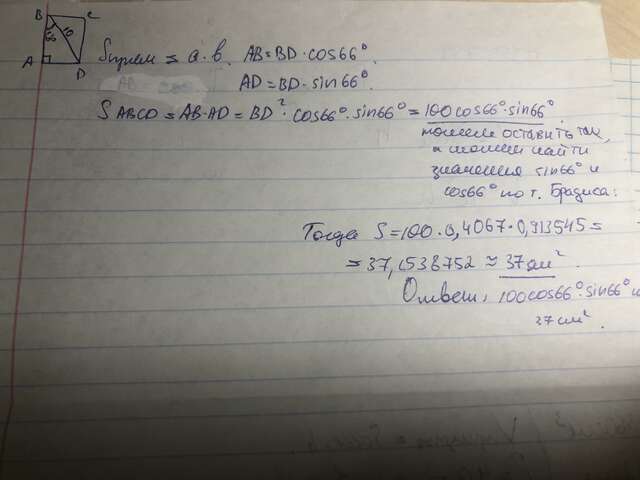 B C
10
66°
A D
Sпрям = a·b. AB=BD·cos66°.
AD=BD·sin66°
S ABCD = AB·AD = BD²·cos66°·sin66° = 100cos66°·sin66°
можем оставить так,
а можем найти
значения sin66° и
cos66° по т. Брадиса:
Тогда S=100·0,4067·0,913545=
=37,1538752 ≈ 37см².
Ответ: 100cos66°·sin66° и
37см².